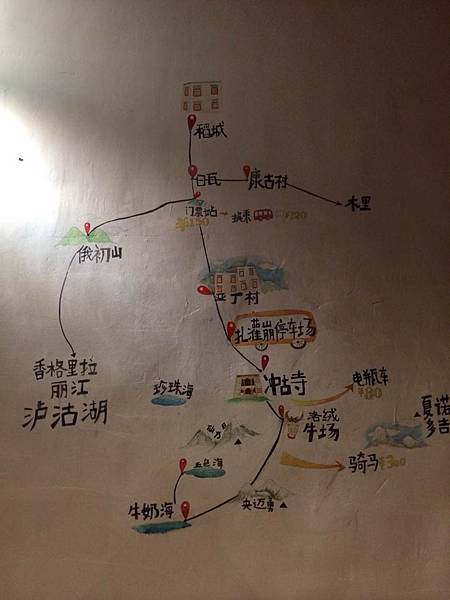 稻城
日瓦
康古村
木里
门票站
¥150
换乘
¥120
俄初山
亚丁村
扎灌崩停车场
香格里拉
丽江
泸沽湖
冲古寺
电瓶车
¥80
珍珠海
洛绒
牛场
夏诺
多吉
仙乃日
五色海
骑马¥300
牛奶海
央迈勇